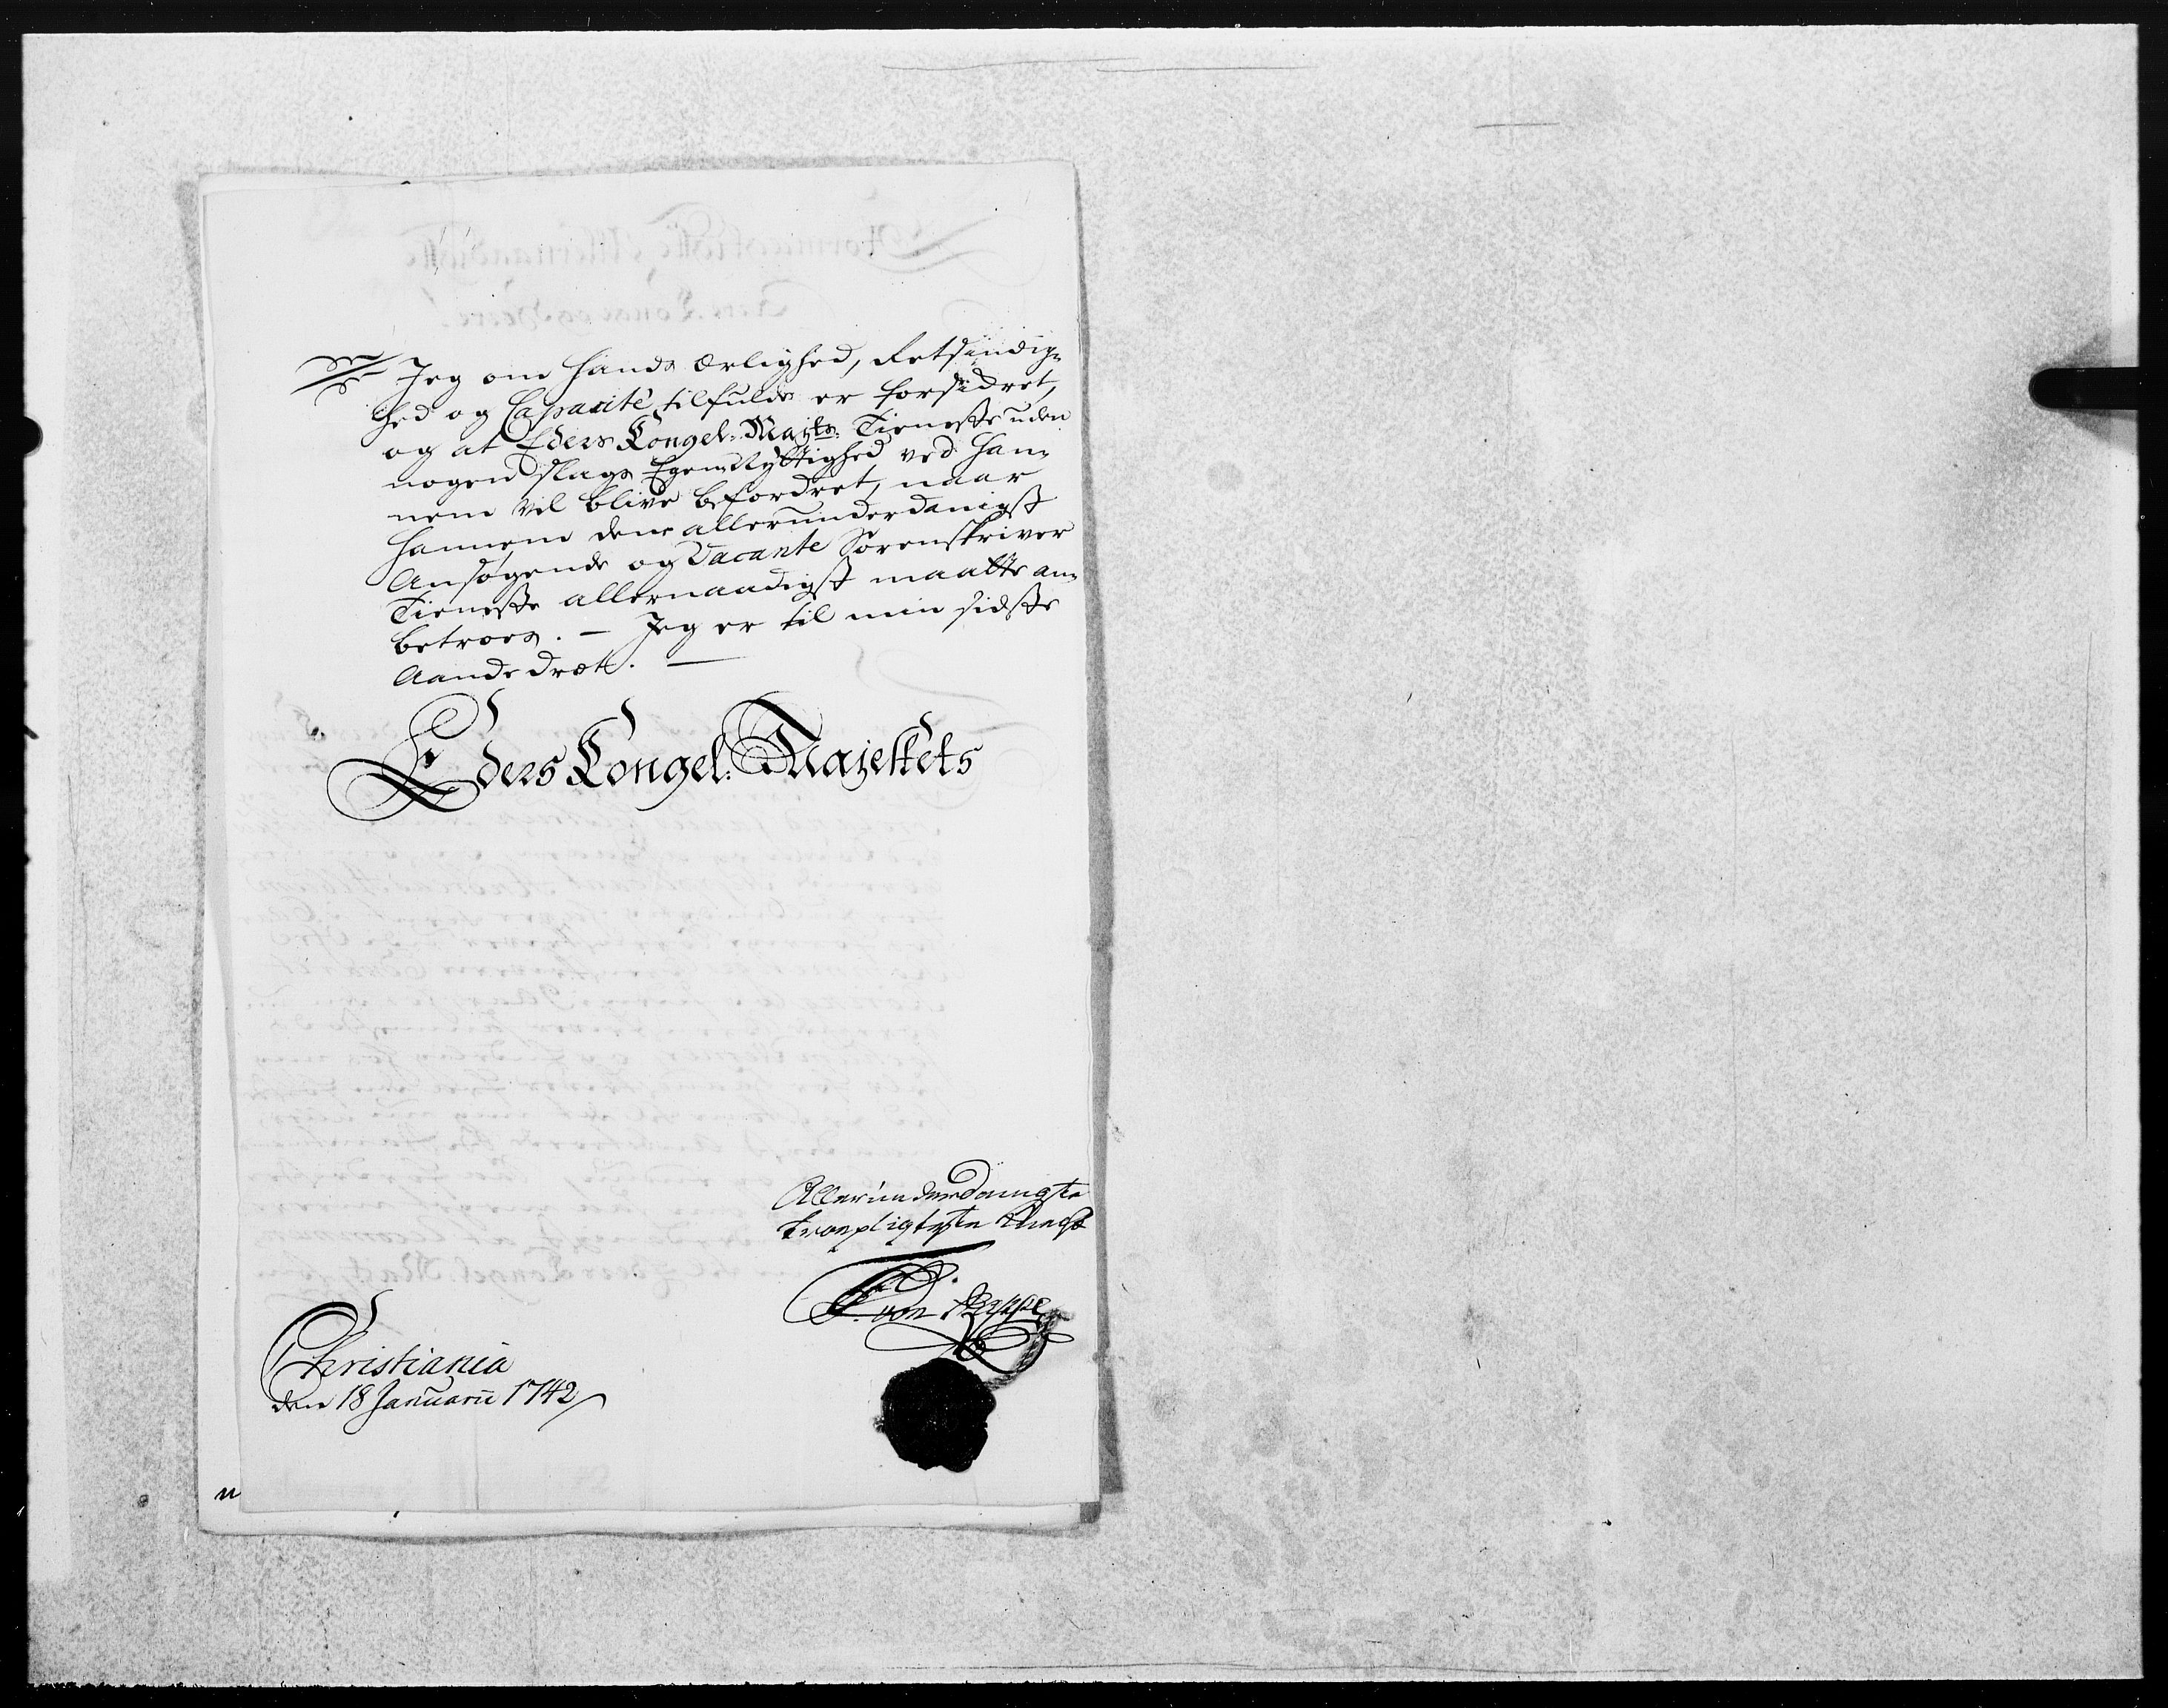 Jeg om hands ærlighed, Retsindig-
hed og Capacité tilfulde er forsickret,
og at Eders Kongel: Majts: Tieneste uden
nogen slags Egennÿttighed ved han-
nem vil blive befordret, naar
hannem den allerunderdanigst
Ansøgende og Vacante Sorenskriver
Tieneste allernaadigst maatte an-
betroes. — Jeg er til min sidste
Aandedræt. —
Eders Kongel: Majestets
Allerunderdanigste
troepligtigste
von
Christiania
den 18 Januarii 1742